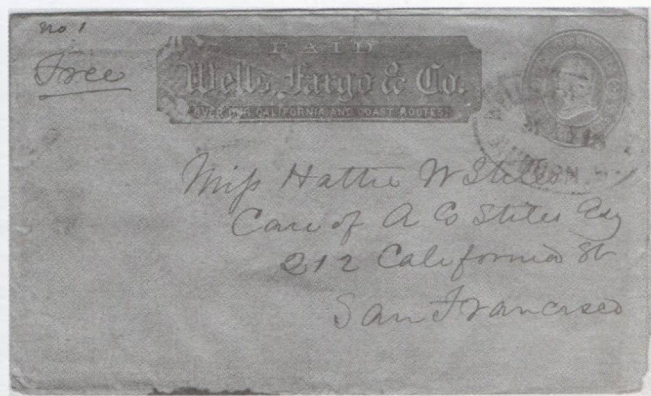 No 1
Free
PAID
Wells, Fargo & Co.
OVER OUR CALIFORNIA AND COAST ROUTES.
Miss Hattie W
Care of A C Stiles Esq
212 California St
San Francisco